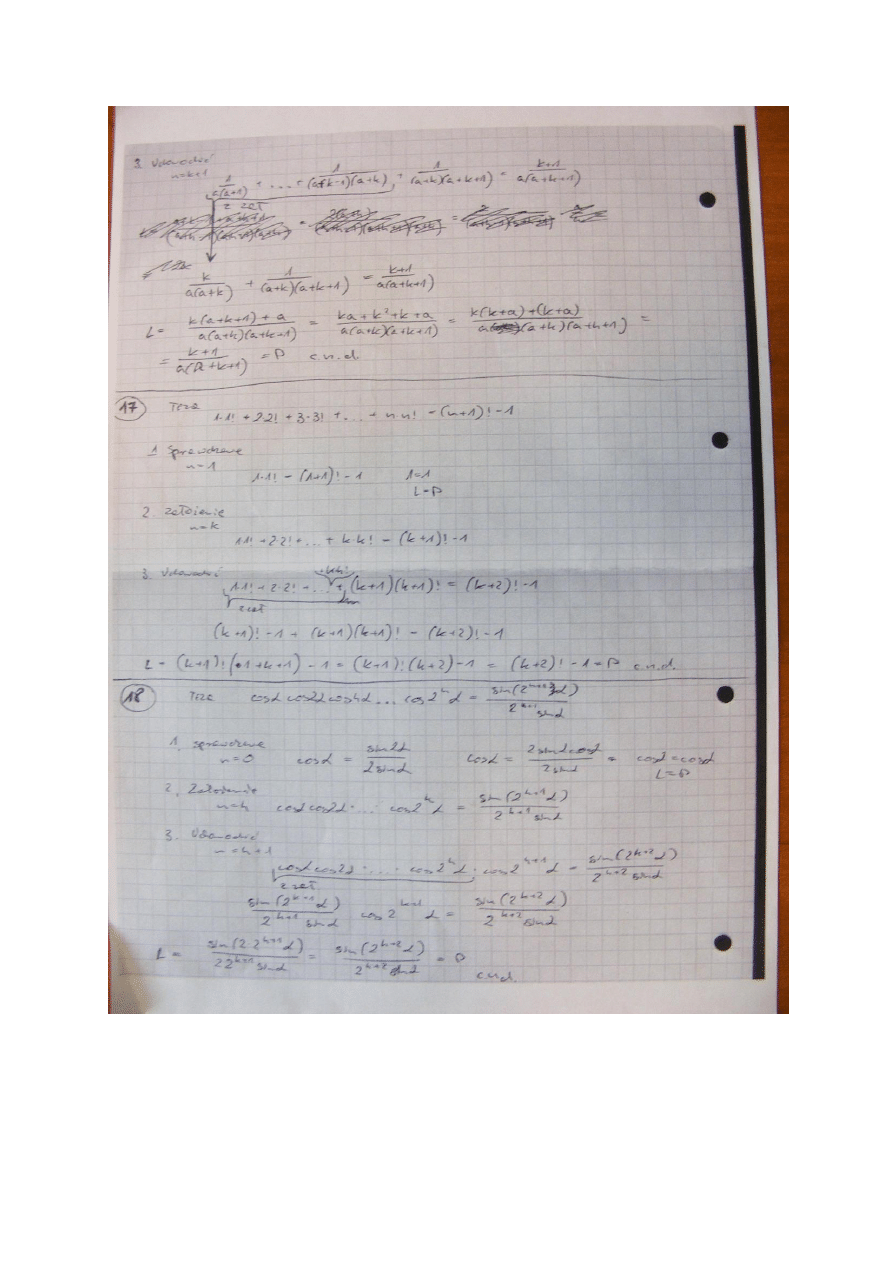 3. Udowodnić
n=k+1
1/(a(a+1)) + ... + 1/((a+k-1)(a+k)) + 1/((a+k)(a+k+1)) = (k+1)/(a(a+k+1))
z zał
k/(a(a+k)) + 1/((a+k)(a+k+1)) = (k+1)/(a(a+k+1))
L= (k(a+k+1)+a)/(a(a+k)(a+k+1)) = (ka+k²+k+a)/(a(a+k)(a+k+1)) = (k(k+a)+(k+a))/(a(a+k)(a+k+1)) =
= (k+1)/(a(a+k+1)) = P c.n.d.
17 Teza
1·1! + 2·2! + 3·3! + ... + n·n! = (n+1)! - 1
1. Sprawdzenie
n=1
1·1! = (1+1)! - 1 1=1
L=P
2. Założenie
n=k
1·1! + 2·2! + ... + k·k! = (k+1)! - 1
3. Udowodnić
+k·k!
1·1! + 2·2! + ... + (k+1)(k+1)! = (k+2)! - 1
z zał
(k+1)! - 1 + (k+1)(k+1)! = (k+2)! - 1
L = (k+1)!(1+k+1) - 1 = (k+1)!(k+2) - 1 = (k+2)! - 1 = P c.n.d.
18 Teza cosα cos2α cos4α ... cos2ⁿα = sin(2ⁿ⁺¹α)/(2ⁿ⁺¹ sinα)
1. sprawdzenie
n=0 cosα = sin2α/(2sinα) cosα = 2sinαcosα/(2sinα) = cosα=cosα
L=P
2. Założenie
n=k cosα cos2α · ... · cos2ᵏα = sin(2ᵏ⁺¹α)/(2ᵏ⁺¹ sinα)
3. Udowodnić
n=k+1
cosα cos2α · ... · cos2ᵏα · cos2ᵏ⁺¹α = sin(2ᵏ⁺²α)/(2ᵏ⁺² sinα)
z zał.
sin(2ᵏ⁺¹α)/(2ᵏ⁺¹ sinα) cos2ᵏ⁺¹α = sin(2ᵏ⁺²α)/(2ᵏ⁺² sinα)
L = sin(2·2ᵏ⁺¹α)/(2·2ᵏ⁺¹ sinα) = sin(2ᵏ⁺²α)/(2ᵏ⁺² sinα) = P
c.n.d.